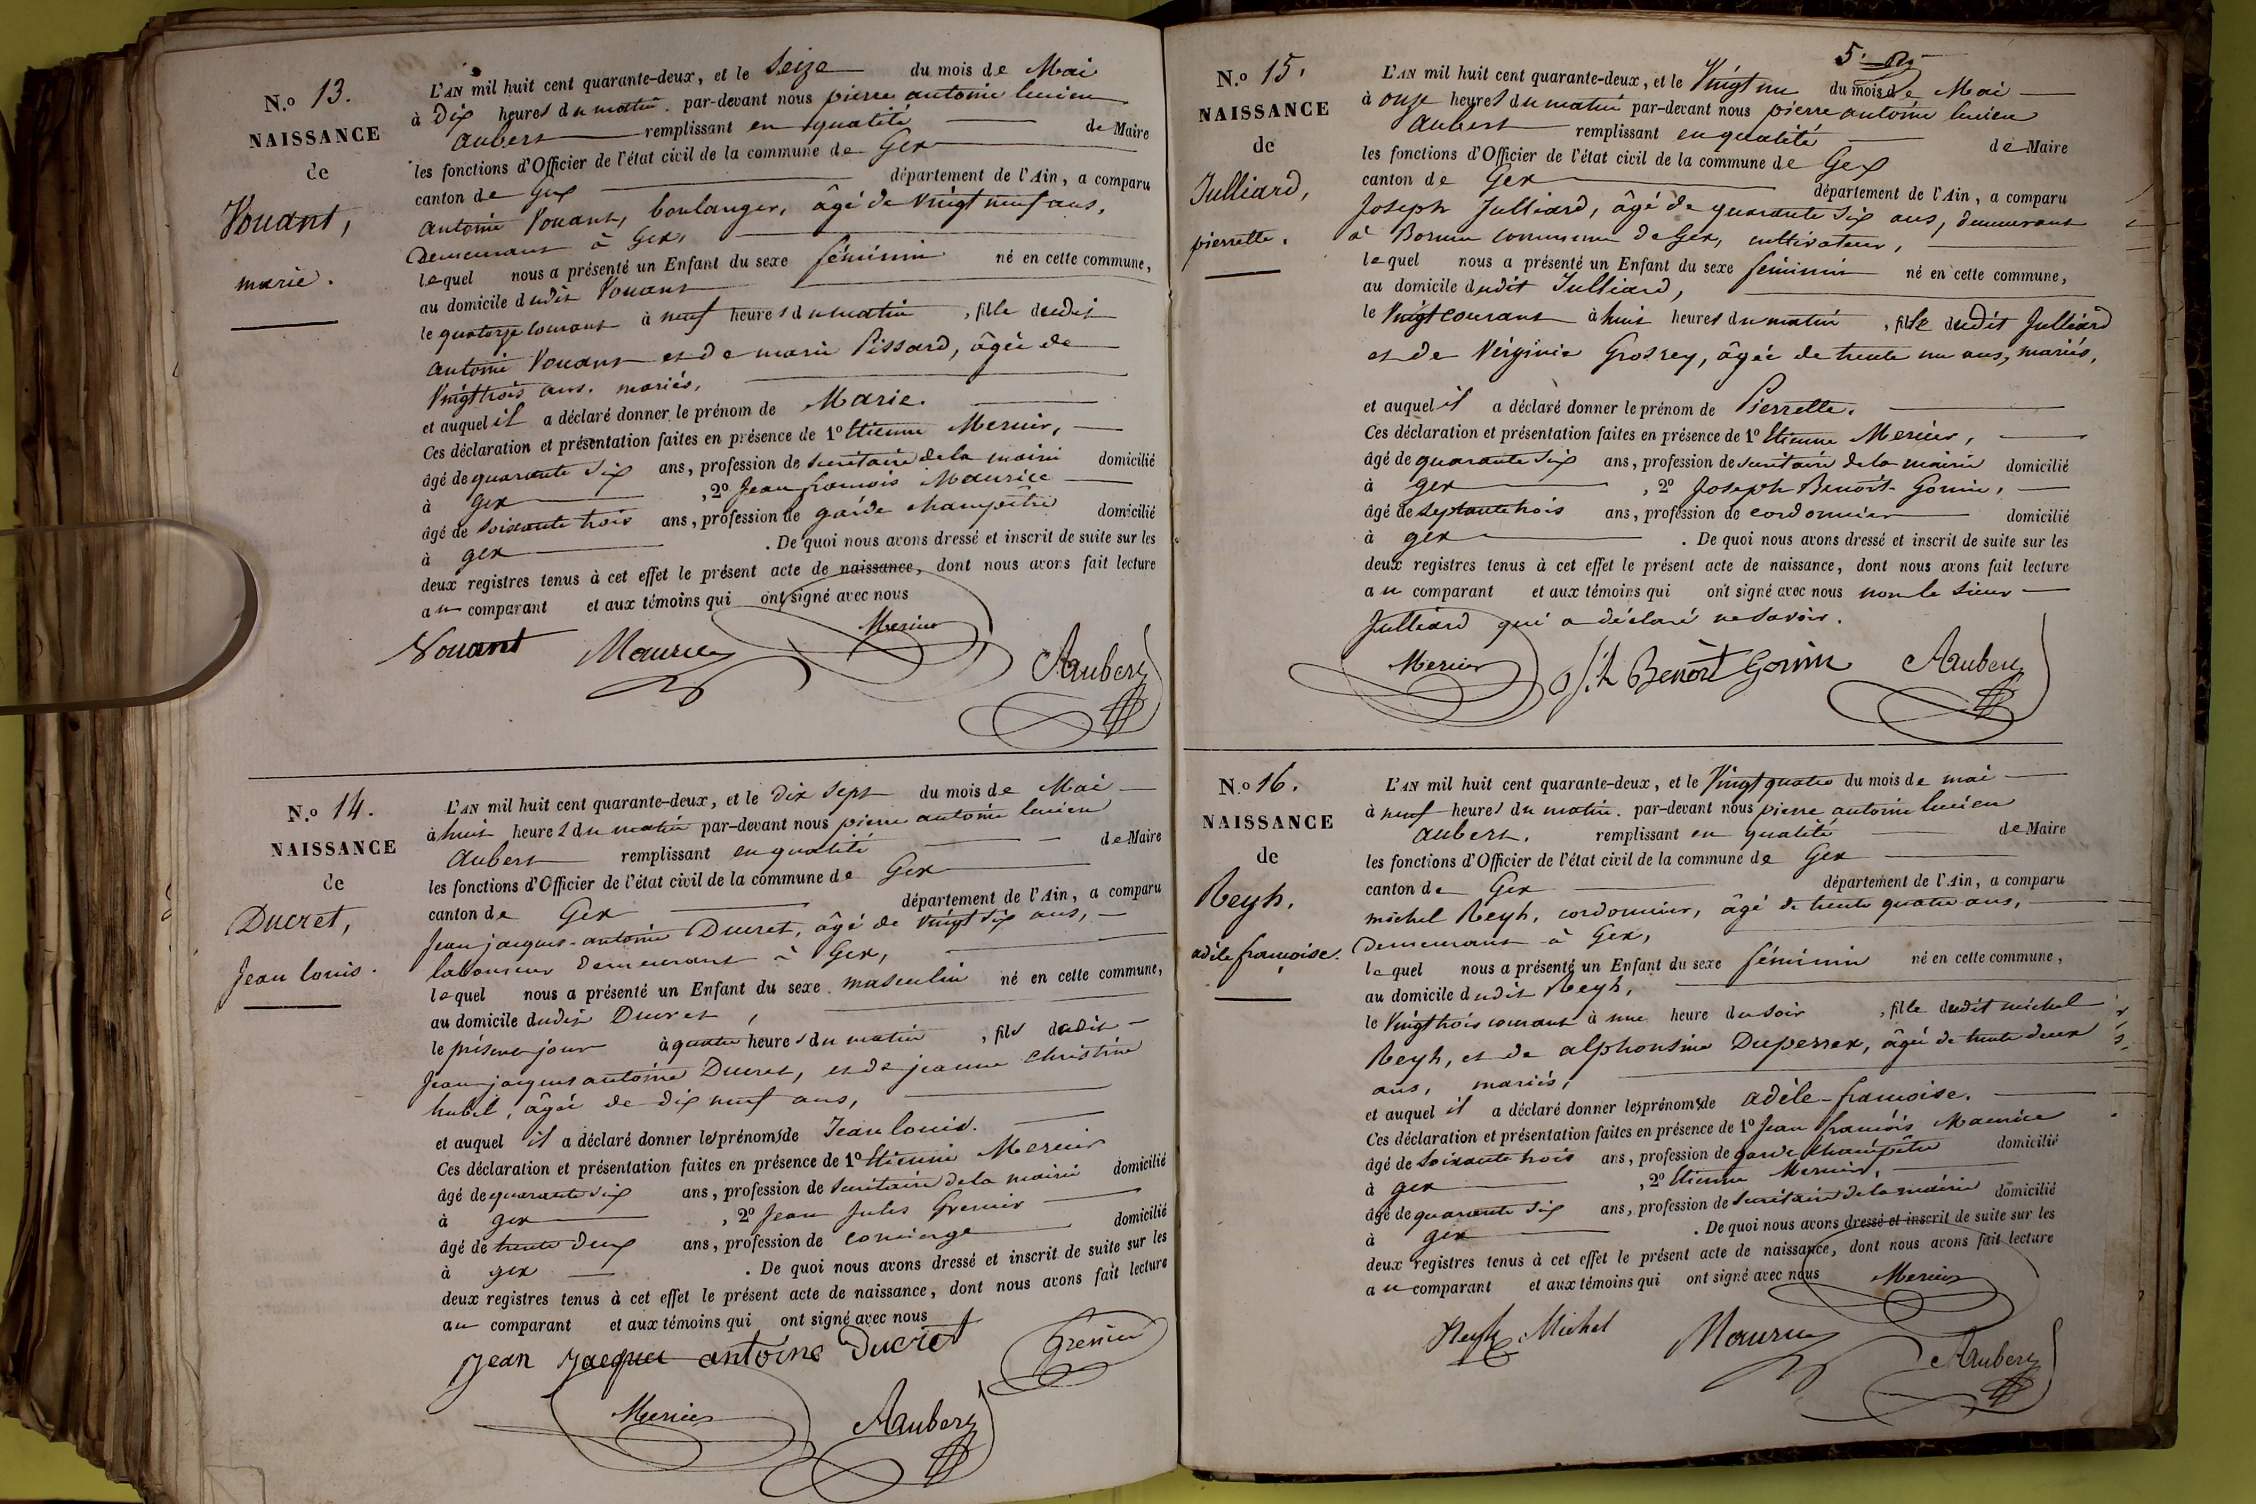 N.o 13.
NAISSANCE
de
Vouant,
marie.
L'AN mil huit cent quarante-deux, et le Seize du mois de Mai
à Dix heures du matin. par-devant nous pierre antoine lucien
Aubert remplissant en qualité de Maire
les fonctions d'Officier de l'état civil de la commune de Gex
canton de Gex département de l'Ain, a comparu
antoine Vouant, boulanger, âgé de Vingt neuf ans,
demeurant à Gex,
lequel nous a présenté un Enfant du sexe féminin né en cette commune,
au domicile dudit Vouant
le quatorze courant à neuf heures du matin, fille dudit
antoine Vouant et de marie Pissard, âgée de
Vingt trois ans. mariés,
et auquel il a déclaré donner le prénom de Marie.
Ces déclaration et présentation faites en présence de 1o Etienne Mercier,
âgé de quarante six ans, profession de secrétaire de la mairie domicilié
à gex, 2o Jean françois Maurice
âgé de soixante trois ans, profession de garde champêtre domicilié
à gex. De quoi nous avons dressé et inscrit de suite sur les
deux registres tenus à cet effet le présent acte de naissance, dont nous avons fait lecture
au comparant et aux témoins qui ont signé avec nous
Vouant Maurice Mercier
Aaubert
N.o 14.
NAISSANCE
de
Ducret,
Jean louis.
L'AN mil huit cent quarante-deux, et le dix sept du mois de Mai
à huit heures du matin par-devant nous pierre antoine lucien
Aubert remplissant en qualité de Maire
les fonctions d'Officier de l'état civil de la commune de Gex
canton de Gex département de l'Ain, a comparu
Jean jacques-antoine Ducret, âgé de vingt six ans,
laboureur demeurant à Gex,
lequel nous a présenté un Enfant du sexe masculin né en cette commune,
au domicile dudit Ducret,
le présent jour à quatre heures du matin, fils dudit
Jean-jacques antoine Ducret, et de jeanne christine
hubil, âgée de dix neuf ans,
et auquel il a déclaré donner les prénoms de Jean louis.
Ces déclaration et présentation faites en présence de 1o Etienne Mercier
âgé de quarante six ans, profession de secrétaire de la mairie domicilié
à gex, 2o Jean Jules Grenier
âgé de trente deux ans, profession de concierge domicilié
à gex. De quoi nous avons dressé et inscrit de suite sur les
deux registres tenus à cet effet le présent acte de naissance, dont nous avons fait lecture
au comparant et aux témoins qui ont signé avec nous
Jean Jacques antoine Ducret Grenier
Mercier Aaubert
5.
N.o 15.
NAISSANCE
de
Julliard,
pierrette.
L'AN mil huit cent quarante-deux, et le Vingt un du mois de Mai
à onze heures du matin par-devant nous pierre antoine lucien
Aubert remplissant en qualité de Maire
les fonctions d'Officier de l'état civil de la commune de Gex
canton de Gex département de l'Ain, a comparu
Joseph Julliard, âgé de quarante six ans, demeurant
à commune de Gex, cultivateur,
lequel nous a présenté un Enfant du sexe féminin né en cette commune,
au domicile dudit Julliard,
le Vingt courant à huit heures du matin, fille dudit Julliard
et de Verginie Grosrey, âgée de trente un ans, mariés,
et auquel il a déclaré donner le prénom de Pierrette.
Ces déclaration et présentation faites en présence de 1o Etienne Mercier,
âgé de quarante six ans, profession de secrétaire de la mairie domicilié
à gex, 2o Joseph Benoit Gonin,
âgé de septante trois ans, profession de cordonnier domicilié
à gex. De quoi nous avons dressé et inscrit de suite sur les
deux registres tenus à cet effet le présent acte de naissance, dont nous avons fait lecture
au comparant et aux témoins qui ont signé avec nous non le sieur
Julliard qui a déclaré ne savoir.
Mercier Benoit Gonin Aaubert
N.o 16.
NAISSANCE
de
Reyh.
adèle françoise.
L'AN mil huit cent quarante-deux, et le Vingt quatre du mois de mai
à neuf heures du matin. par-devant nous pierre antoine lucien
Aubert. remplissant en qualité de Maire
les fonctions d'Officier de l'état civil de la commune de Gex
canton de Gex département de l'Ain, a comparu
michel Reyh, cordonnier, âgé de trente quatre ans,
demeurant à Gex,
lequel nous a présenté un Enfant du sexe féminin né en cette commune,
au domicile dudit Reyh,
le Vingt trois courant à une heure du soir, fille dudit michel
Reyh, et de alphonsine Duperrex, âgée de trente deux
ans, mariés,
et auquel il a déclaré donner les prénoms de adèle-françoise.
Ces déclaration et présentation faites en présence de 1o Jean françois Maurice
âgé de soixante trois ans, profession de garde champêtre domicilié
à gex, 2o Etienne Mercier,
âgé de quarante six ans, profession de secrétaire de la mairie domicilié
à gex. De quoi nous avons dressé et inscrit de suite sur les
deux registres tenus à cet effet le présent acte de naissance, dont nous avons fait lecture
au comparant et aux témoins qui ont signé avec nous Mercier
Reyh Michel Maurice
Aaubert